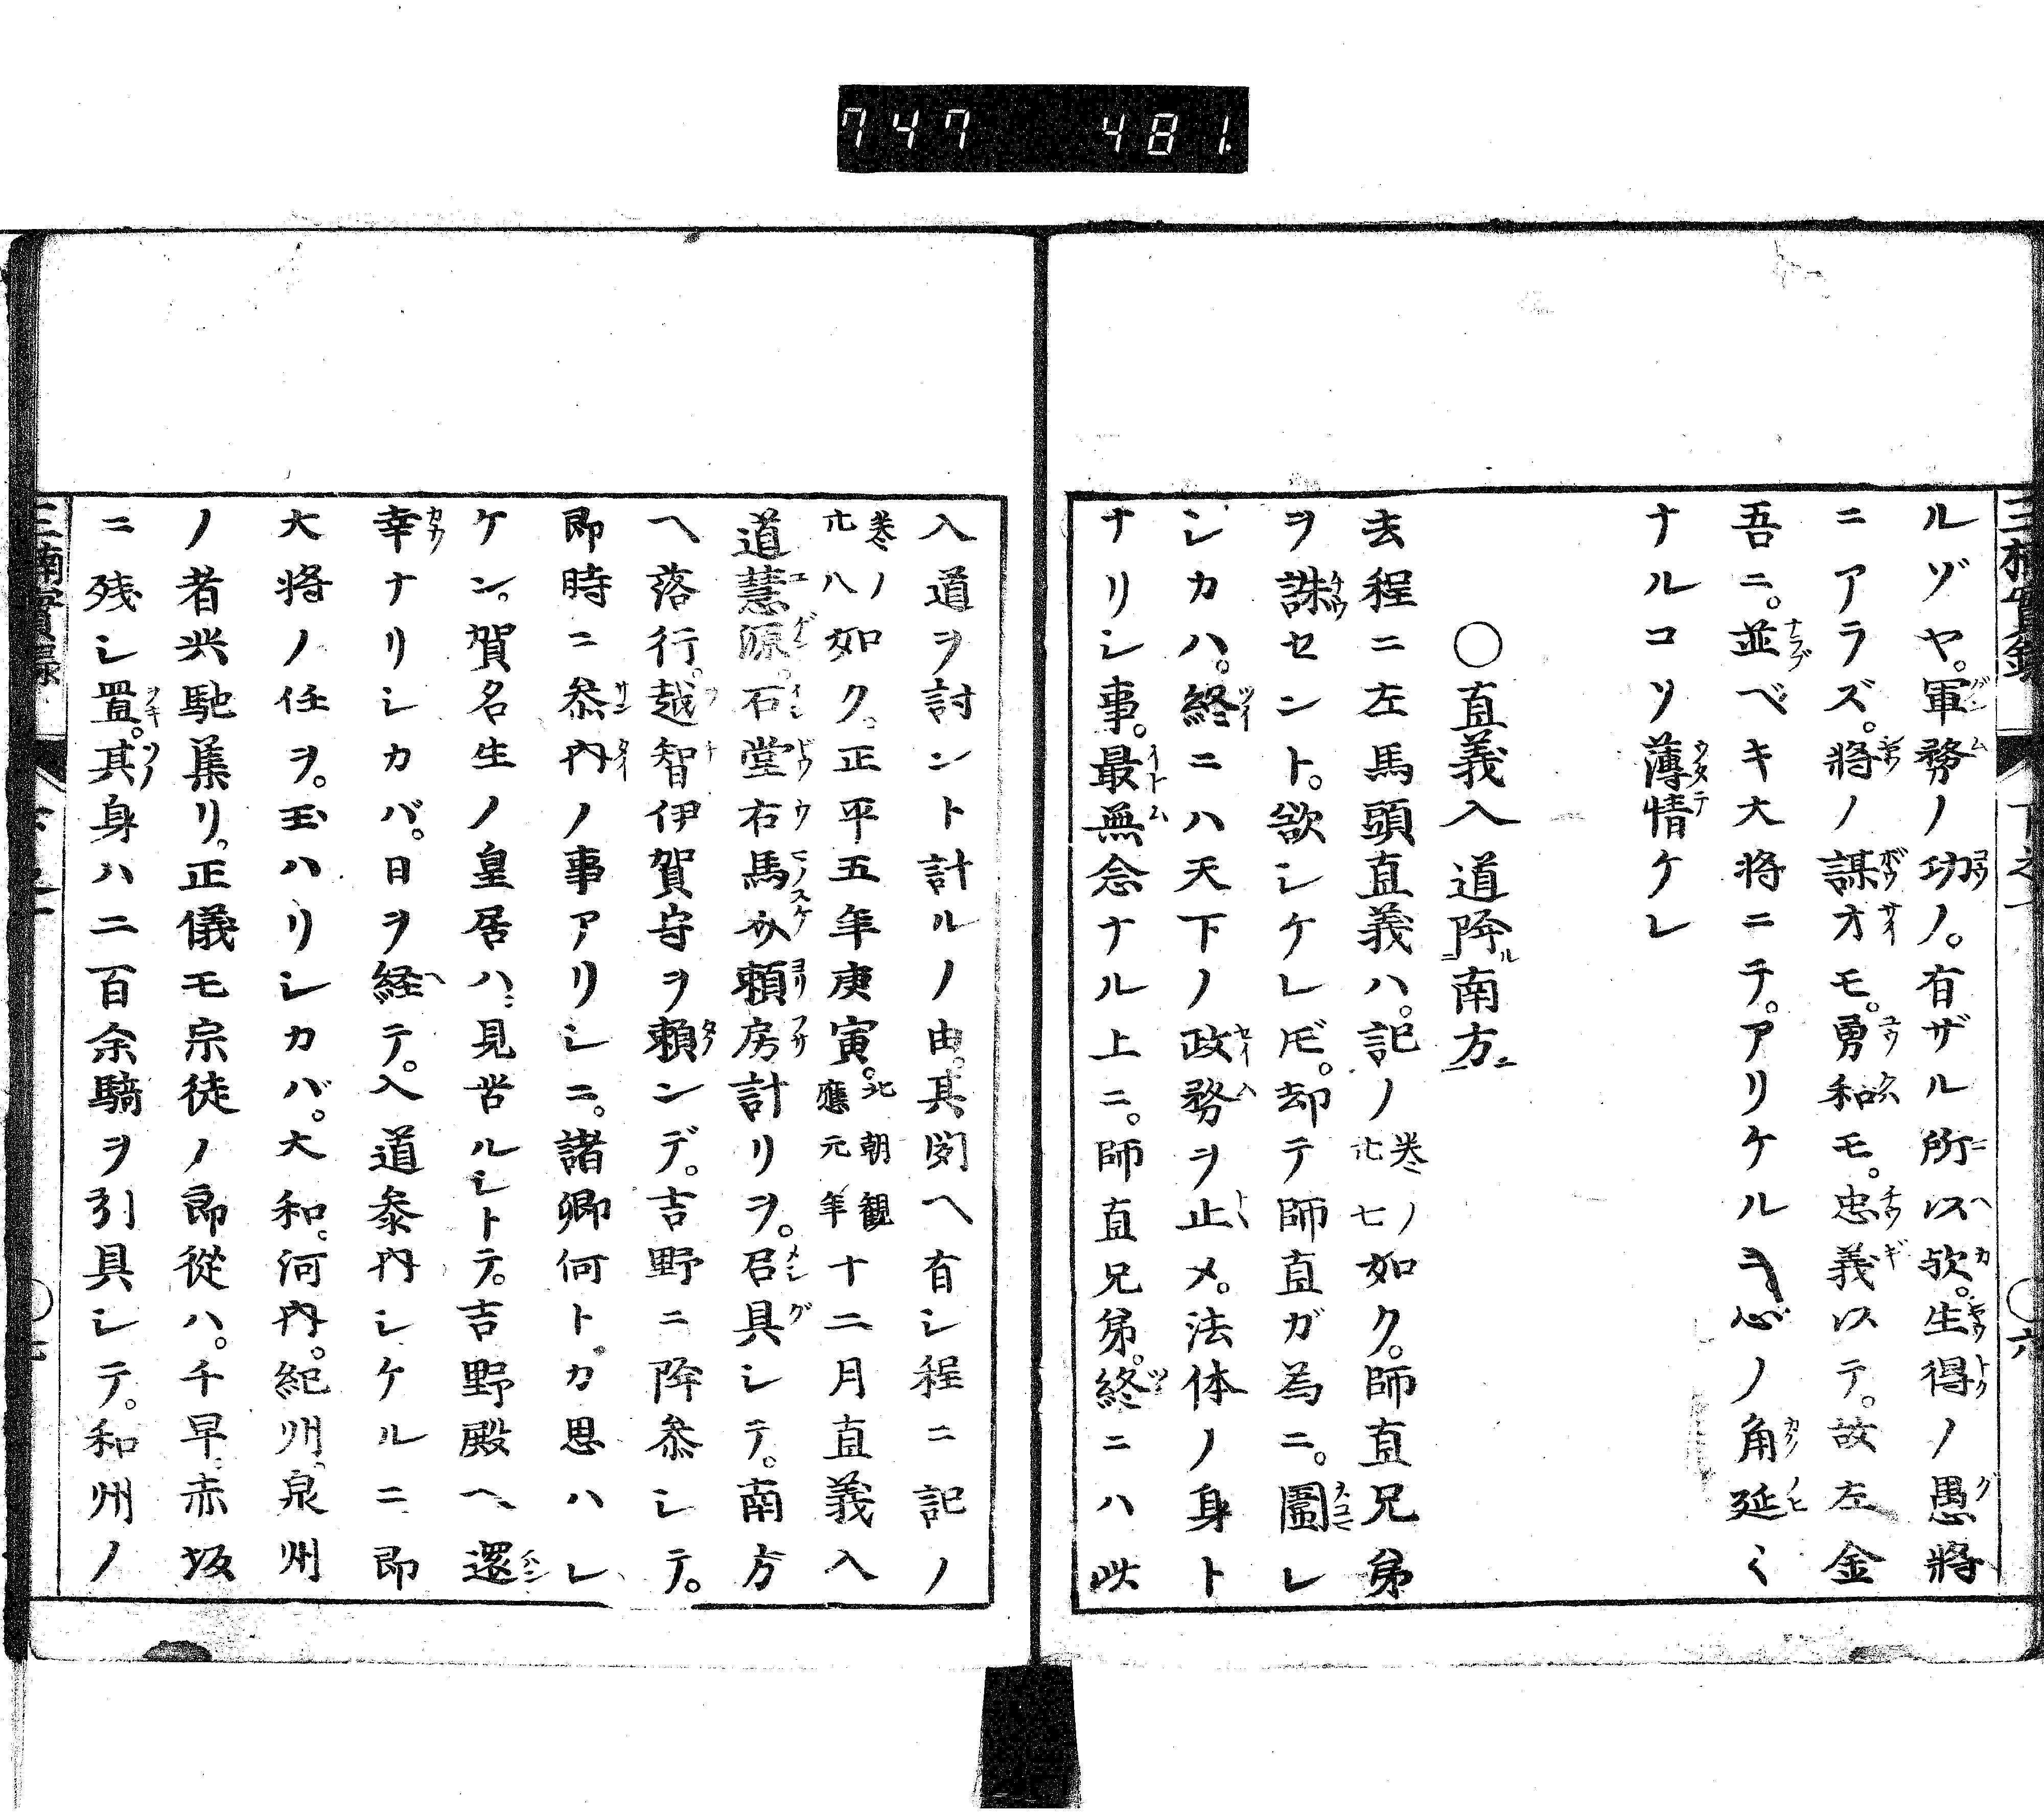 747 481.
三楠實録 下之一 ○六
ルゾヤ。軍務ノ功ノ。有ザル所以歟。生得ノ愚將
ニアラズ。將ノ謀才モ。勇和モ。忠義以テ。故左金
吾ニ。並ベキ大将ニテ。アリケルニ心ノ角延〻
ナルコソ薄情ケレ
○直義入道降南方
去程ニ左馬頭直義ハ。記ノ卷ノ廿七如ク。師直兄弟
ヲ誅セント。欲シケレ𪜈。却テ師直ガ為ニ。圖レ
シカハ。終ニハ天下ノ政務ヲ止メ。法体ノ身ト
ナリシ事。最無念ナル上ニ。師直兄弟。終ニハ此
入道ヲ討ント計ルノ由。其聞ヘ有シ程ニ記ノ
卷ノ廿八如ク。正平五年庚寅。北朝観應元年十二月直義入
道慧源。石堂右馬助頼房計リヲ。召具シテ。南方
ヘ落行。越智伊賀守ヲ頼ンデ。吉野ニ降参シテ。
即時ニ参内ノ事アリシニ。諸卿何ト。カ思ハレ
ケン。賀名生ノ皇居ハ、見苦ルシトテ。吉野殿ヘ還
幸ナリシカバ。日ヲ経テ。入道参内シケルニ即
大将ノ任ヲ。玉ハリシカバ。大和。河内。紀州。泉州
ノ者共馳集リ。正儀モ宗徒ノ郎從ハ。千早。赤坂
ニ残シ置。其身ハ二百余騎ヲ引具シテ。和州ノ
三楠實録